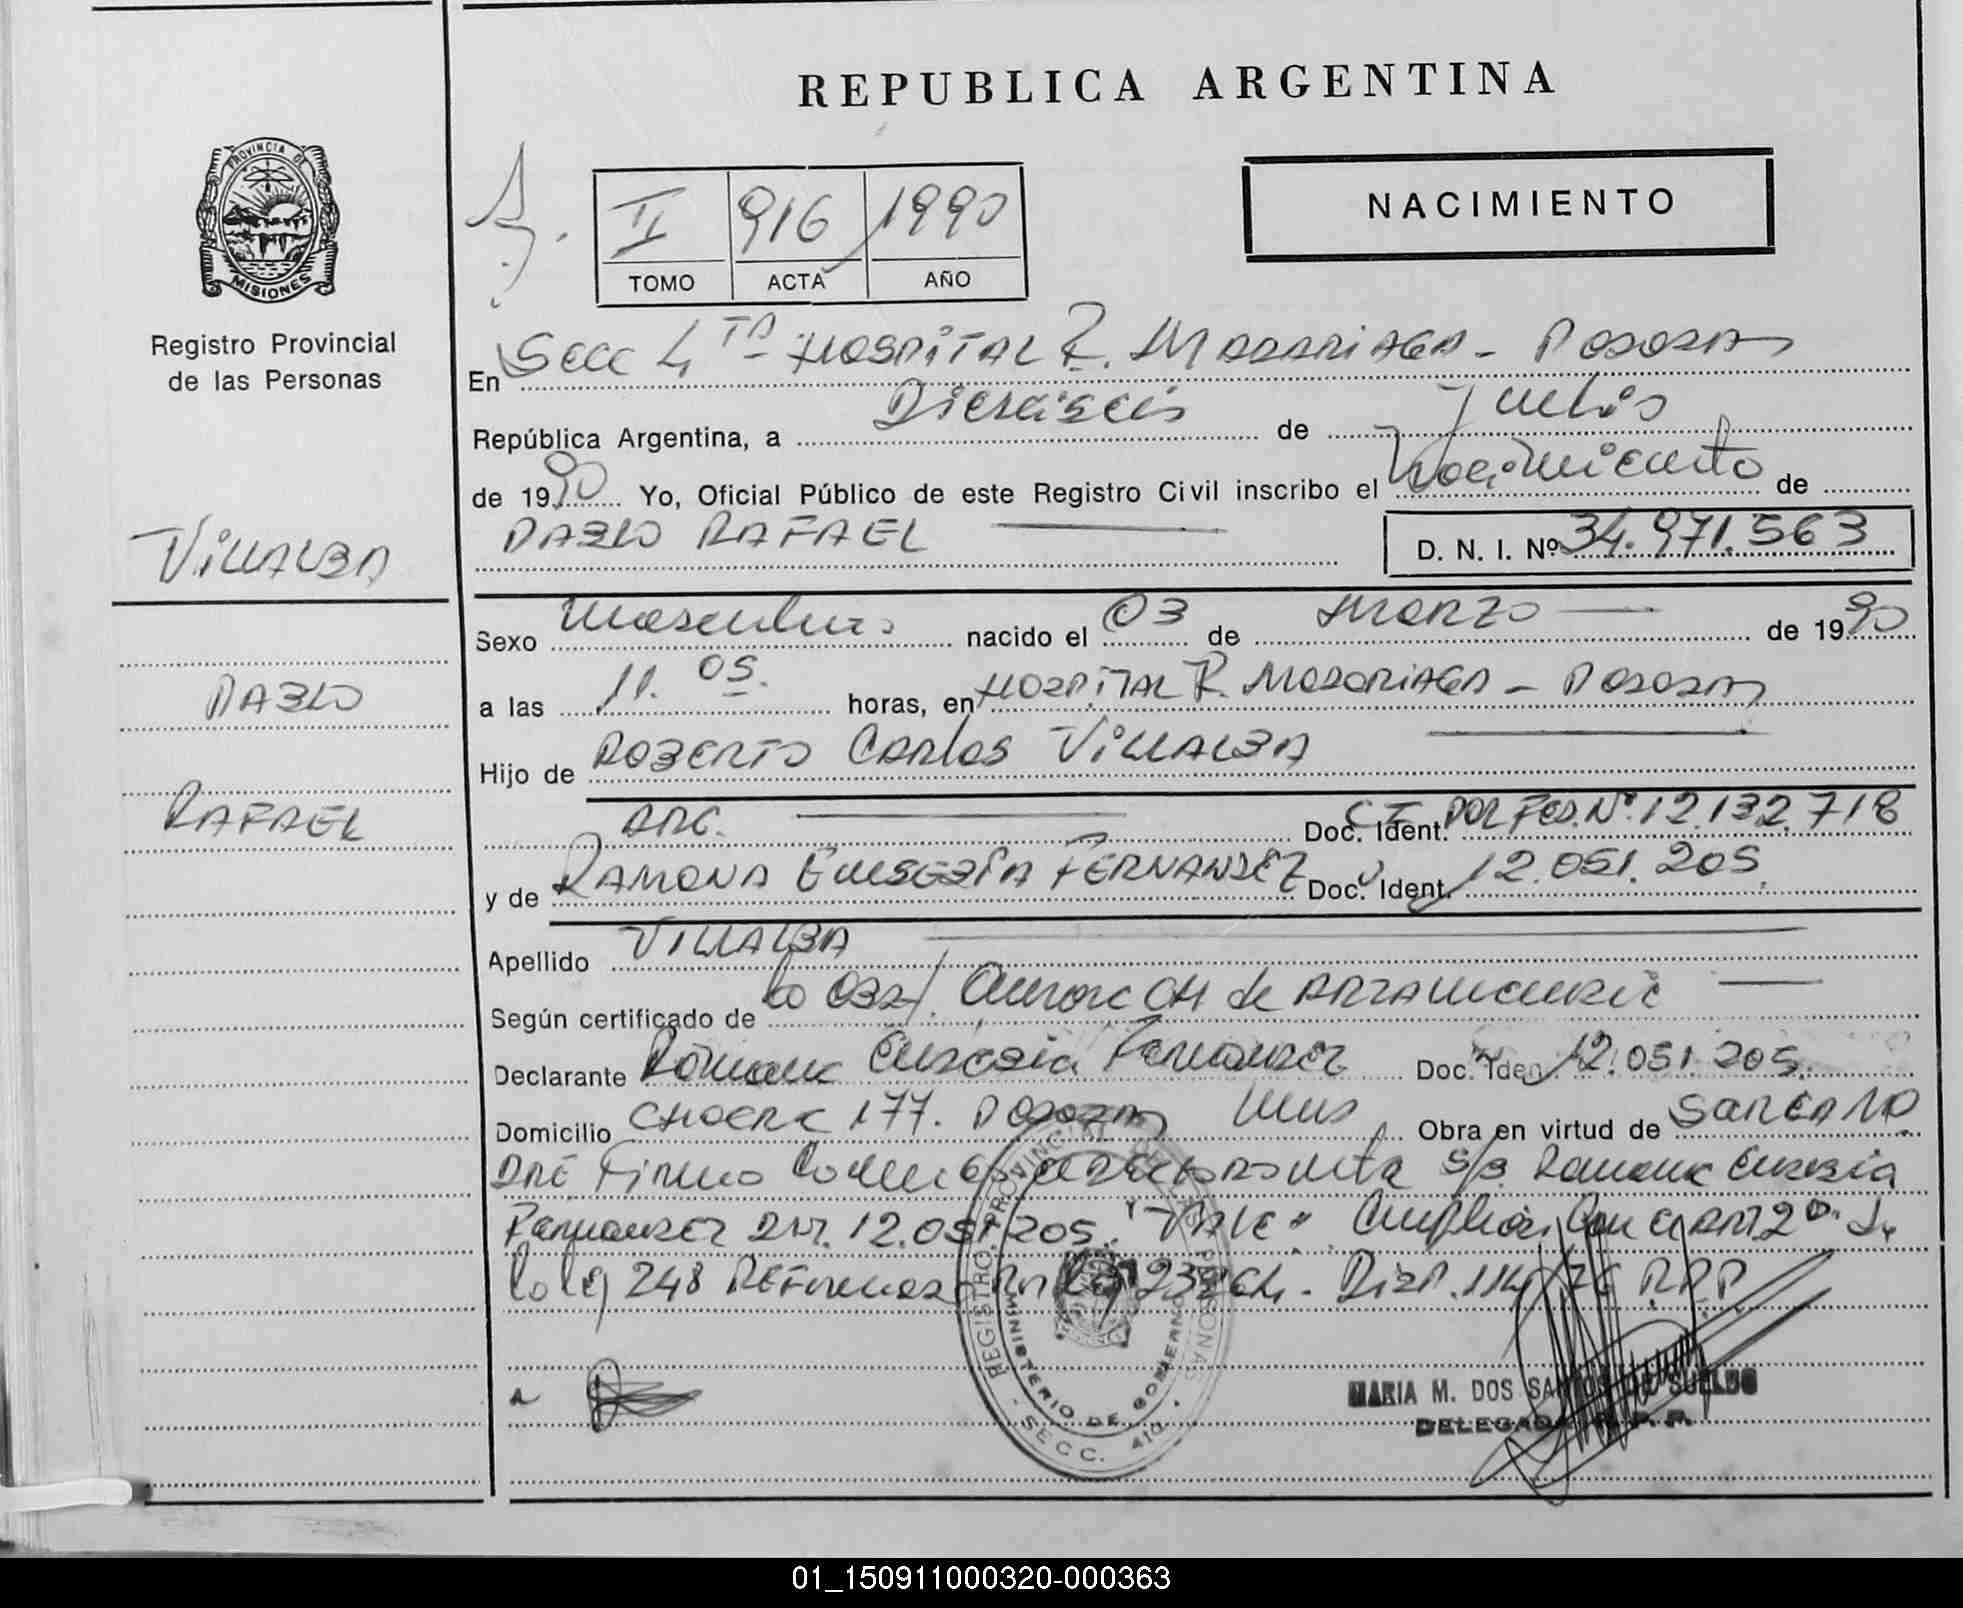 REPUBLICA ARGENTINA
PROVINCIA DE
MISIONES
Registro Provincial
de las Personas
II 916 1990
TOMO ACTA AÑO
NACIMIENTO
En Secc 4 TA HOSPITAL R. MADARIAGA - POSADAS
República Argentina, a Dieciseis de Julio
de 1990 Yo, Oficial Público de este Registro Civil inscribo el Nacimiento de
VILLALBA
PABLO RAFAEL D. N. I. Nº 34.971.563
Sexo Masculino nacido el 03 de MARZO de 1990
PABLO
a las 11.05. horas, en HOSPITAL R. MADARIAGA - POSADAS
Hijo de ROBERTO CARLOS VILLALBA
RAFAEL
ARG. Doc. Ident. C I POL FED. Nº 12.132.718
y de RAMONA EUSEBIA FERNANDEZ Doc. Ident. 12.051.205.
Apellido VILLALBA
Según certificado de la OBST. de
Declarante Ramona Eusebia Fernandez Doc. Iden. 12.051.205.
Domicilio 177. POSADAS Mnes Obra en virtud de SER LA MA
DRE Firma S/B. Ramona Eusebia
Fernandez DNI. 12.051.205. "VALE"
248 Disp. 114/76 R.P.P.
REGISTRO PROVINCIAL DE LAS PERSONAS
MINISTERIO DE GOBIERNO
- SECC. 4ta. -
MARIA M. DOS SANTOS DE SUELDO
DELEGADA R. P. P.
01_150911000320-000363